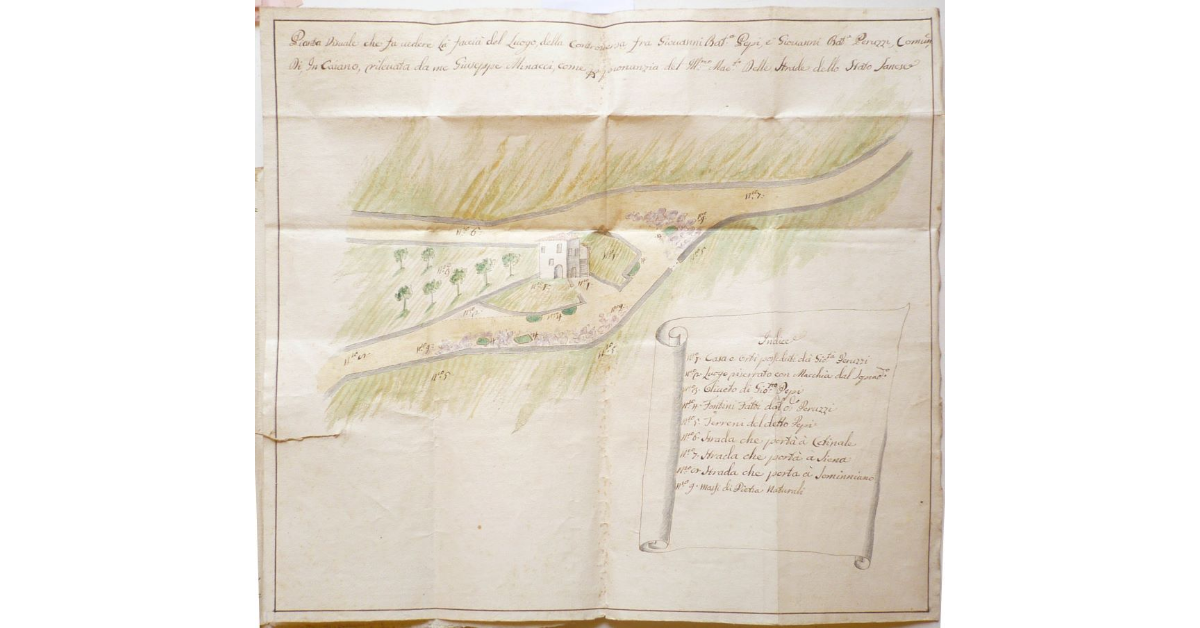 Pianta Visuale che fa vedere la faccia del Luogo della Controversia fra Giovanni Bat.ª Pepi, e Giovanni Bat.ª Peruzzi, Comun
Di, In Caiano, rilevata da me Giuseppe Minacci, come per del Ill.mo Mae.to Delle Strade dello Stato Sanese
N.ro 7
N.ro 6
N.ro 9
N.ro 3
N.ro 5
N.ro 1
N.ro 1
N.ro 4
N.ro 9
N.ro 2
N.ro 9
N.ro 8
N.ro 5
N.ro 5
Indice
N.ro 1. Casa e orti posseduti da Gio. Peruzzi
N.ro 2. Luogo riserrato con Macchia dal
N.ro 3. Oliveto di Gio. Pepi
N.ro 4. Fontini Fatti dal Peruzzi
N.ro 5. Terreni del detto Pepi
N.ro 6. Strada che porta à Cetinale
N.ro 7. Strada che porta a Siena
N.ro 8. Strada che porta à Sominniano
N.ro 9. Massi di Pietra Naturali